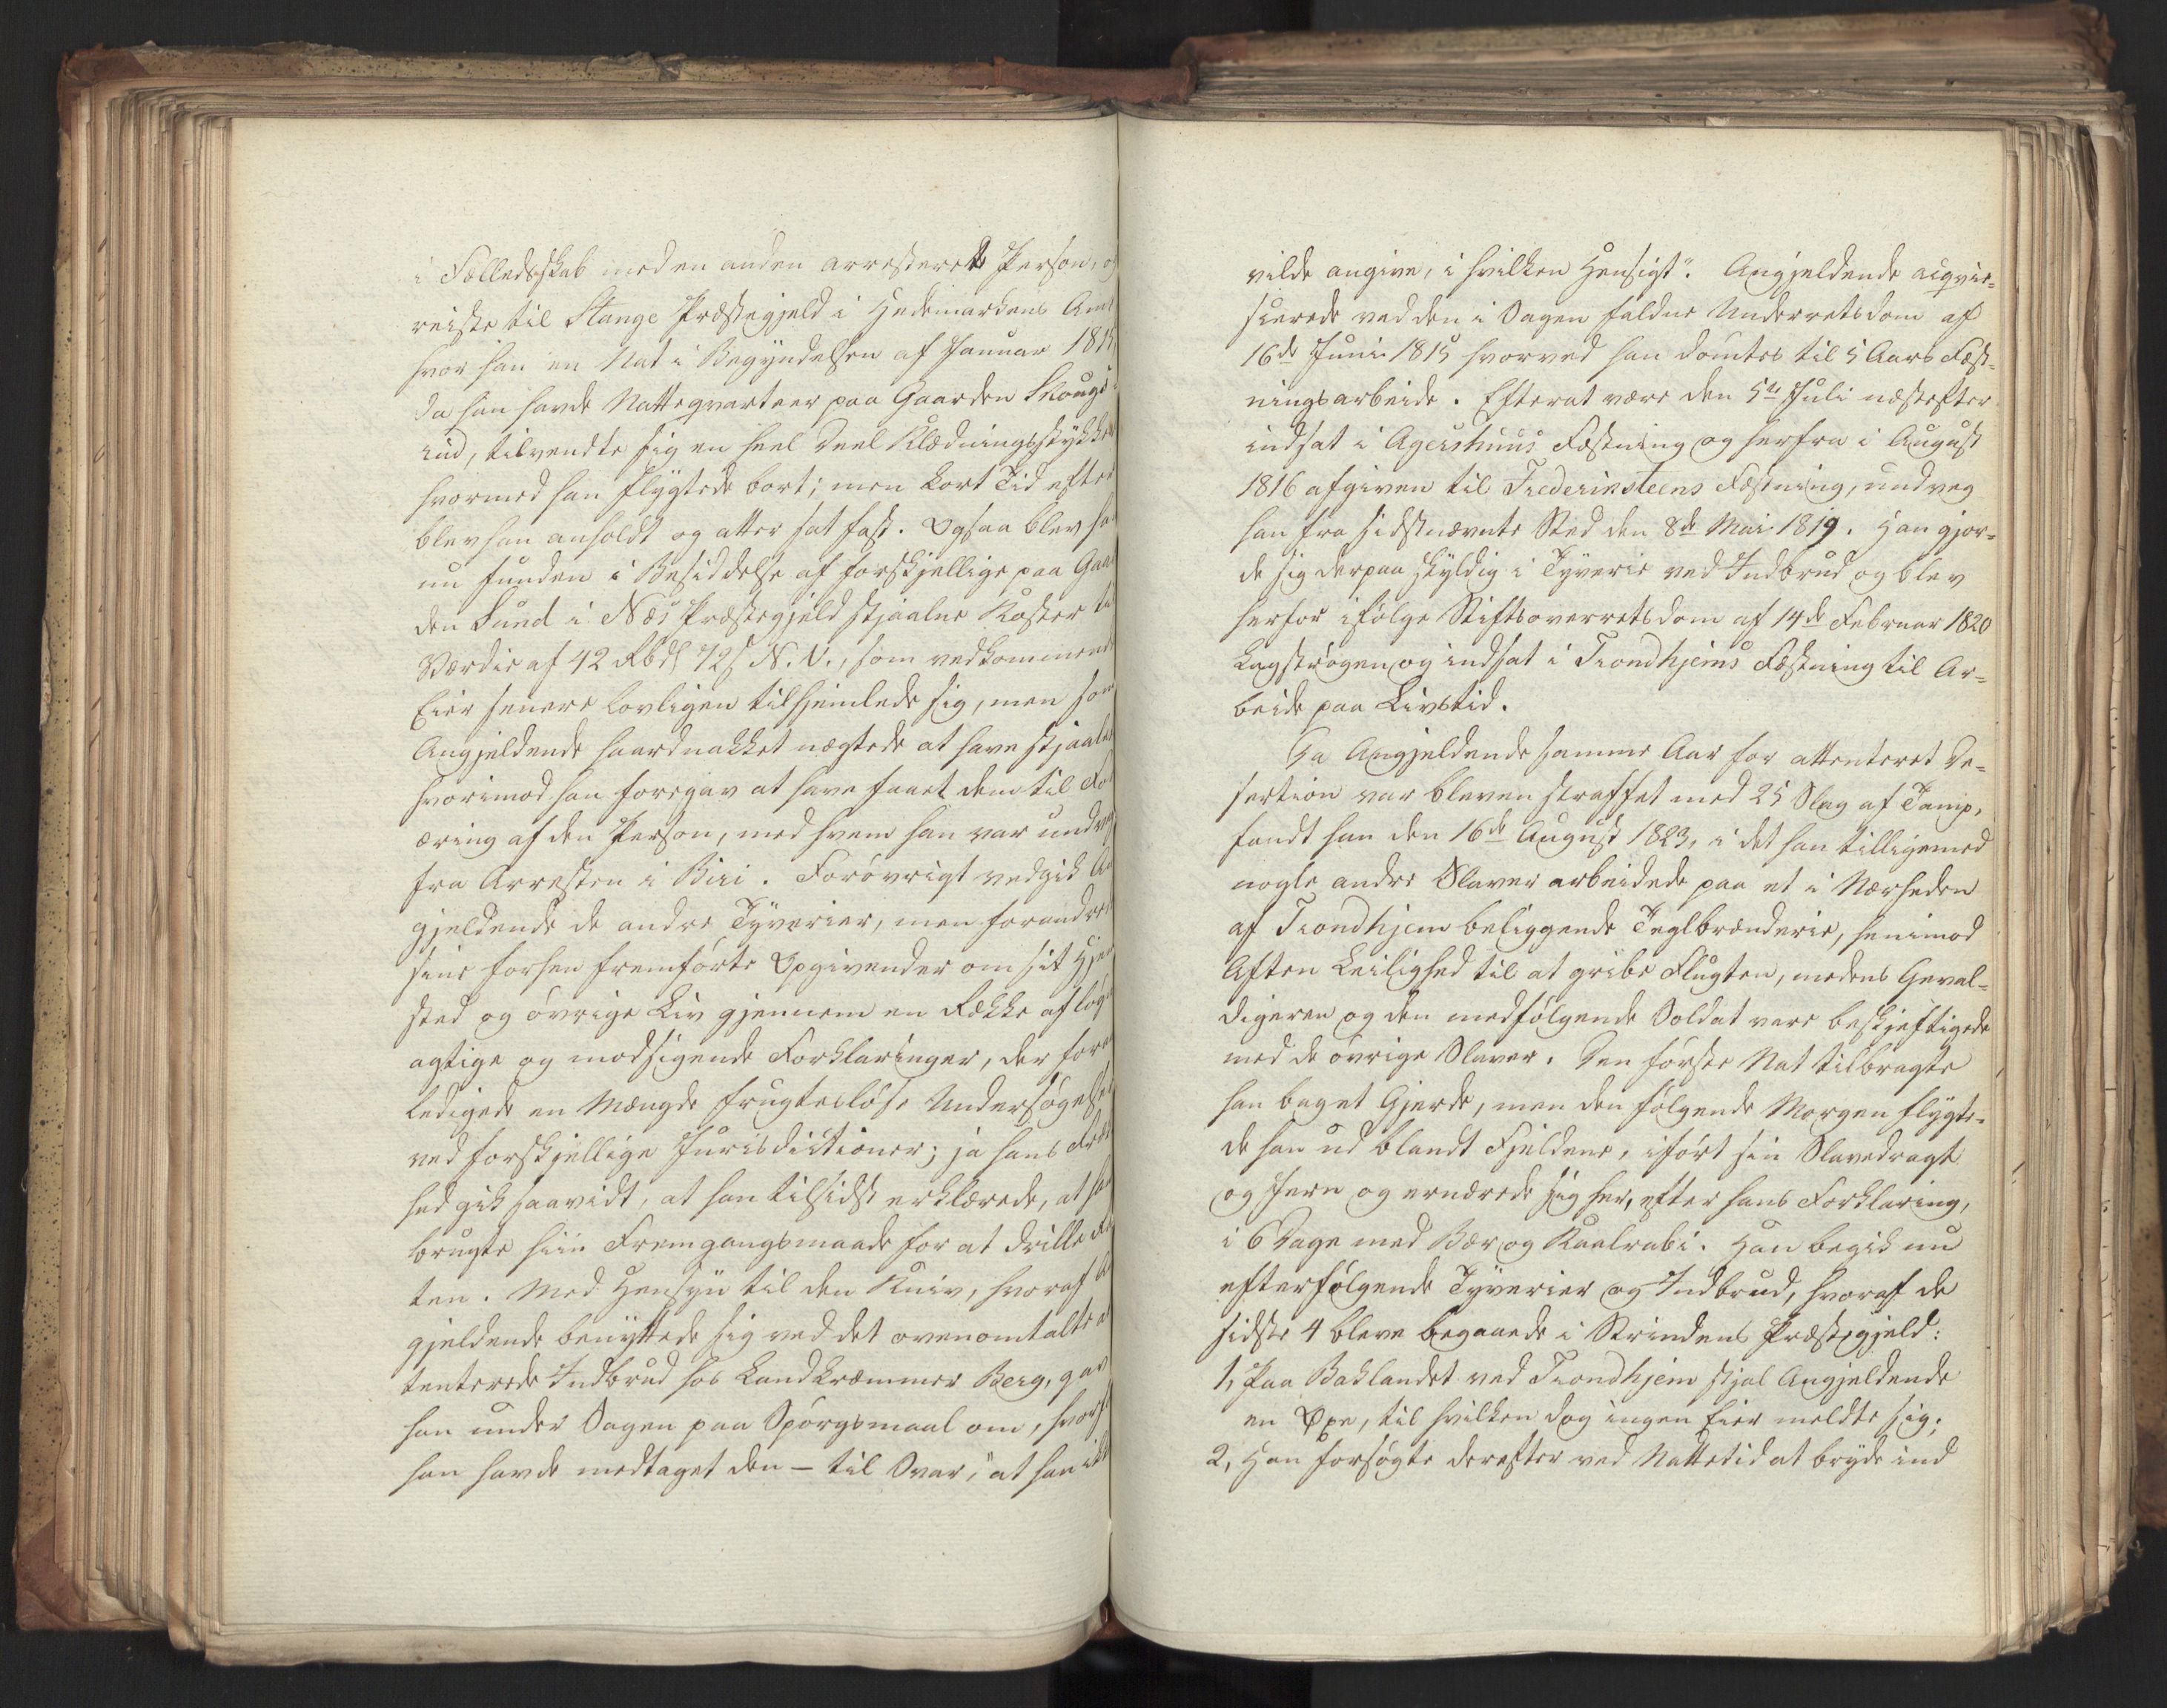 i Fælledsskab med en anden arresteret Person, og
reiste til Stange Præstegjeld i Hedemarkens Amt
hvor han en Nat i Begyndelsen af Januar 1815
da han havde Nattegvarteer paa Gaarden
ind, tilvendte sig en heel Deel Klædningsstykker
hvormed han flygtede bort; men kort Tid efter
blev han anholdt og atter sat fast. Ogsaa blev han
nu funden i Besiddelse af forskjellige paa Gaar
den Lund i Næs Præstegjeld stjaalne Koster til
Værdie af 42 Rbdl 72 s N. V., som vedkommende
Eier senere lovligen tilhjemlede sig, men som
Angjeldende haardnakket nægtede at have stjaalet
hvorimod han foregav at have faaet dem til For
æring af den Person, med hvem han var undveg
fra Arresten i Biri. Forøvrigt vedgik An
gjeldende de andre Tyverier, men forandrede
sine forhen fremførte Opgivender om sit Hjem
sted og øvrige Liv gjennem en Række af løgn
agtige og modsigende Forklaringer, der foran
ledigede en Mængde frugtesløse Undersøgelser
ved forskjellige Jurisdictioner; ja hans Fræk
hed gik saavidt, at han tilsidst erklærede, at han
brugte hiin Fremgangsmaade for at drille Ret
ten. Med Hensyn til den Kniv, hvoraf An
gjeldende benyttede sig ved det ovenomtalte at
tenterede Indbrud hos Landkræmmer Berg, gav
han under Sagen paa Spørgsmaal om, hvorfor
han havde medtaget den – til Svar, "at han ikke
vilde angive, i hvilken Hensigt". Angjeldende acqvie-
scerede ved den i Sagen faldne Underretsdom af
16de Juni 1815 hvorved han dømtes til 5 Aars Fæst-
ningsarbeide. Efterat være den 5te Juli næstefter
indsat i Agershuus Fæstning og herfra i August
1816 afgiven til Frederiksteens Fæstning, undveg
han fra sidstnævnte Sted den 8de Mai 1819. Han gjor-
de sig derpaa skyldig i Tyverie ved Indbrud og blev
herfor ifølge Stiftsoverretsdom af 14de Februar 1820
kagstrøgen og indsat i Trondhjems Fæstning til Ar-
beide paa Livstid.
Da Angjeldende samme Aar for attenteret De-
sertion var bleven straffet med 25 Slag af Tamp,
fandt han den 16de August 1823, i det han tilligemed
nogle andre Slaver arbeidede paa et i Nærheden
af Trondhjem beliggende Teglbrænderie, henimod
Aften Leilighed til at gribe Flugten, medens Geval-
digeren og den medfølgende Soldat vare beskjeftigede
med de øvrige Slaver. Den første Nat tilbragte
han bag et Gjerde, men den følgende Morgen flygte-
de han ud blandt Fjeldene, iført sin Slavedragt
og Jern og ernærede sig her, efter hans Forklaring,
i 6 Dage med Bær og Kaalrabi. Han begik nu
efterfølgende Tyverier og Indbrud, hvoraf de
sidste 4 bleve begaaede i Strindens Præstegjeld:
1, Paa Baklandet ved Trondhjem stjal Angjeldende
en Øxe, til hvilken dog ingen Eier meldte sig;
2, Han forsøgte derefter ved Nattetid at bryde ind